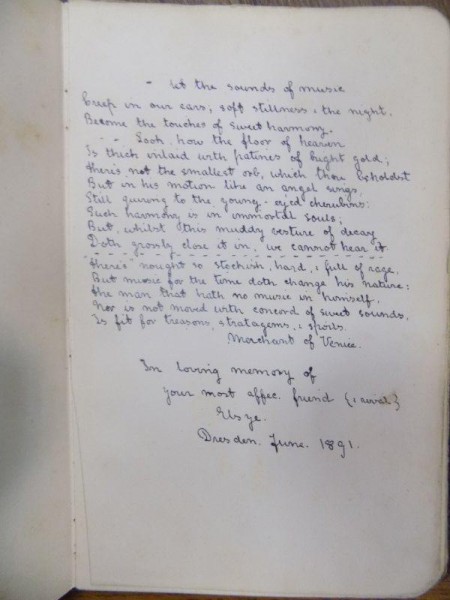 - let the sounds of music
Creep in our ears, soft stillness, & the night.
Become the touches of sweet harmony.
- - Look, how the floor of heaven
Is thick inlaid with patines of bright gold;
There's not the smallest orb, which thou beholdst
But in his motion like an angel sings,
Still quiring to the young-eyed cherubins:
Such harmony is in immortal souls;
But, whilst this muddy vesture of decay
Doth grossly close it in, we cannot hear it
There's nought so stockish, hard, & full of rage,
But music for the time doth change his nature:
The man that hath no music in himself,
Nor is not moved with concord of sweet sounds,
Is fit for treasons, stratagems, & spoils.
Merchant of Venice.
In loving memory of
your most affec. friend (& rival)
Elsye.
Dresden. June. 1891.